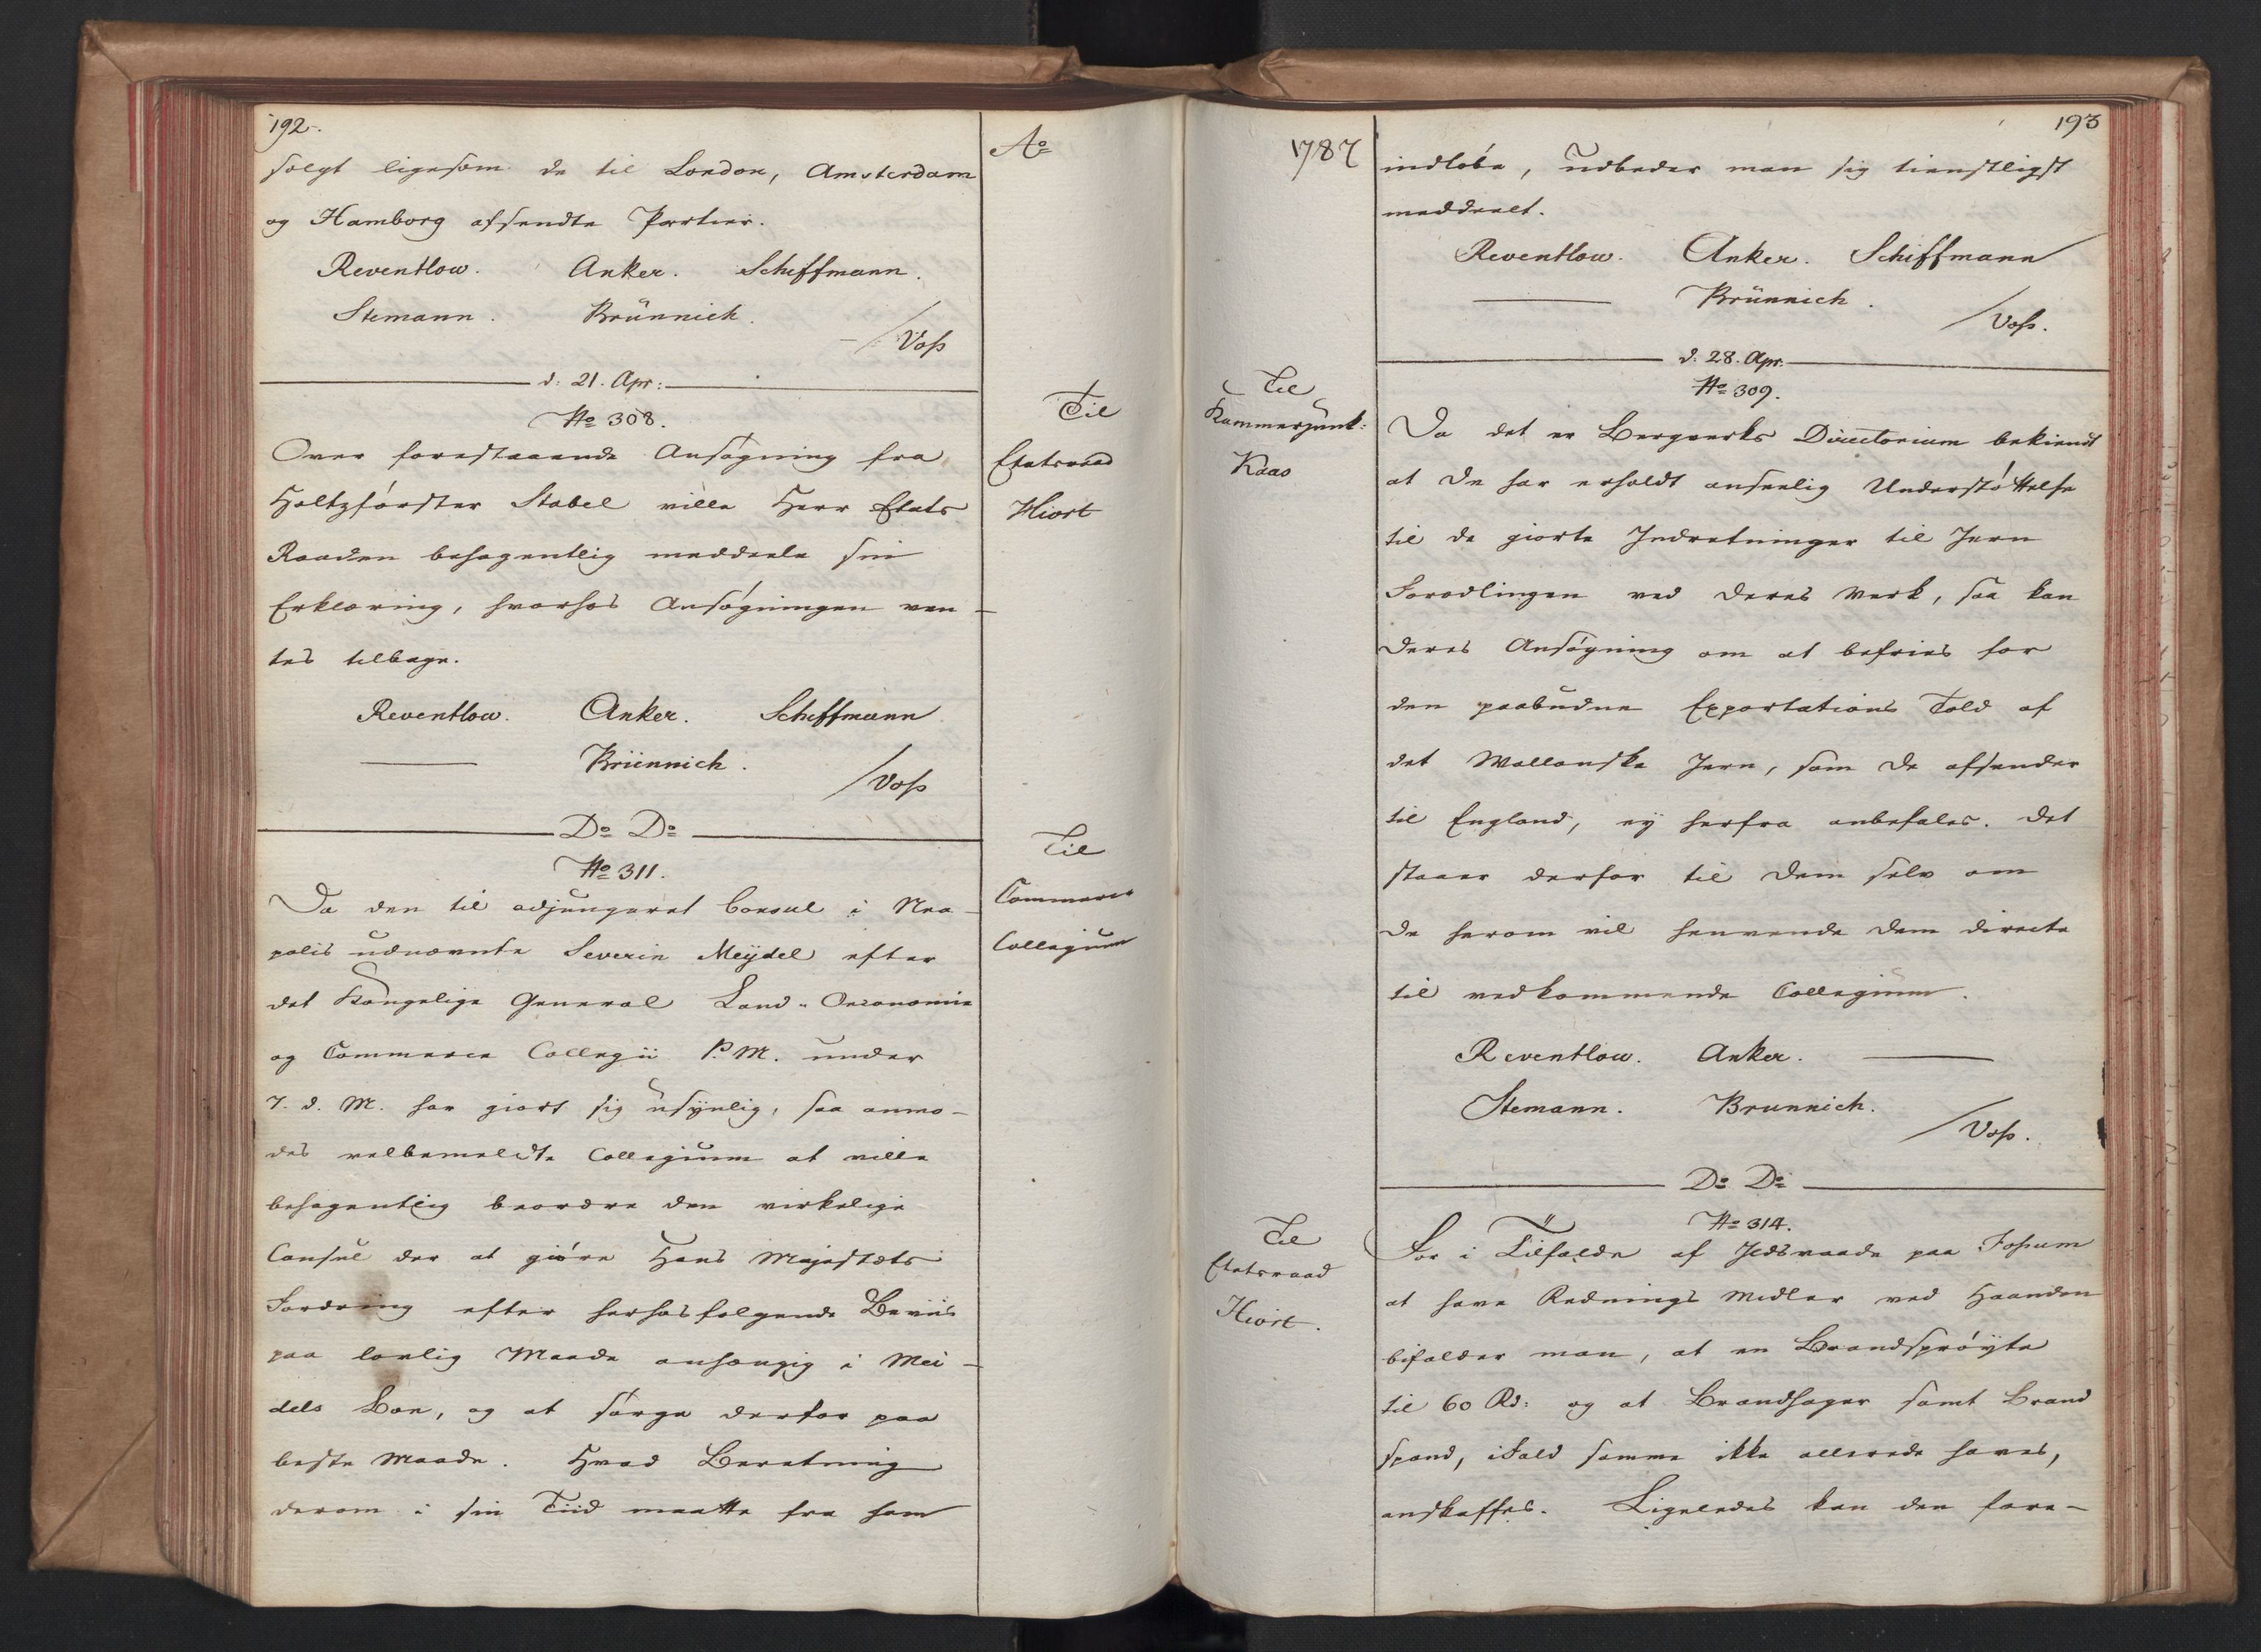 192.
Ao
solgt ligesom de til London, Amsterdam
og Hamborg afsendte Partier.
Reventlow. Anker. Schiffmann.
Stemann. Brünnich.
/Voss
d: 21. Apr:
No 308.
Til
Etatsraad
Hiort
Over forestaaende Ansøgning fra
Holtzførster Stabel ville Herr Etats
Raaden behagentlig meddeele sin
Erklæring, hvorhos Ansøgningen ven-
tes tilbage.
Reventlow. Anker. Schiffmann
Brünnich.
/Voss
Do Do
No 311.
Til
Commerce
Collegium
Da den til adjungeret Consul i Nea-
polis udnævnte Severin Meÿdel efter
det Kongelige General Land- Oeconomie
og Commerce Collegii P.M. under
7. d. M. har giort sig usÿnlig, saa anmo-
des velbemeldte Collegium at ville
behagentlig beordre den virkelige
Consul der at giøre Hans Majestæts
Fordring efter herhosfølgende Beviis
paa lovlig Maade anhængig i Mei-
dels Boe, og at sørge derfor paa
beste Maade. Hvad Beretning
derom i sin Tiid maatte fra ham
1787
193
indløbe, udbeder man sig tienstligst
meddeelt.
Reventlow. Anker. Schiffmann
Brünnich.
/Voss.
d: 28. Apr.
No 309.
Til
Kammerjunk:
Kaas
Da det er Bergverks Directorium bekiendt
at De har erholdt anseelig Understøttelse
til de giorte Indretninger til Jern
Forædlingen ved Deres Verk, saa kan
Deres Ansøgning om at befries for
den paabudne Exportations Told af
det Wallonske Jern, som De afsender
til England, eÿ herfra anbefales. Det
staaer derfor til Dem selv om
De herom vil henvende Dem directe
til vedkommende Collegium.
Reventlow. Anker.
Stemann. Brunnich.
/Voss.
Do Do
No 314.
Til
Etatsraad
Hiort.
For i Tilfælde af Ildsvaade paa Fossum
at have Rednings Midler ved Haanden
bifalder man, at en Brandsprøÿte
til 60 Rd: og at Brandhager samt Brand
spand, ifald samme ikke allerede haves,
anskaffes. Ligeledes kan den fore-